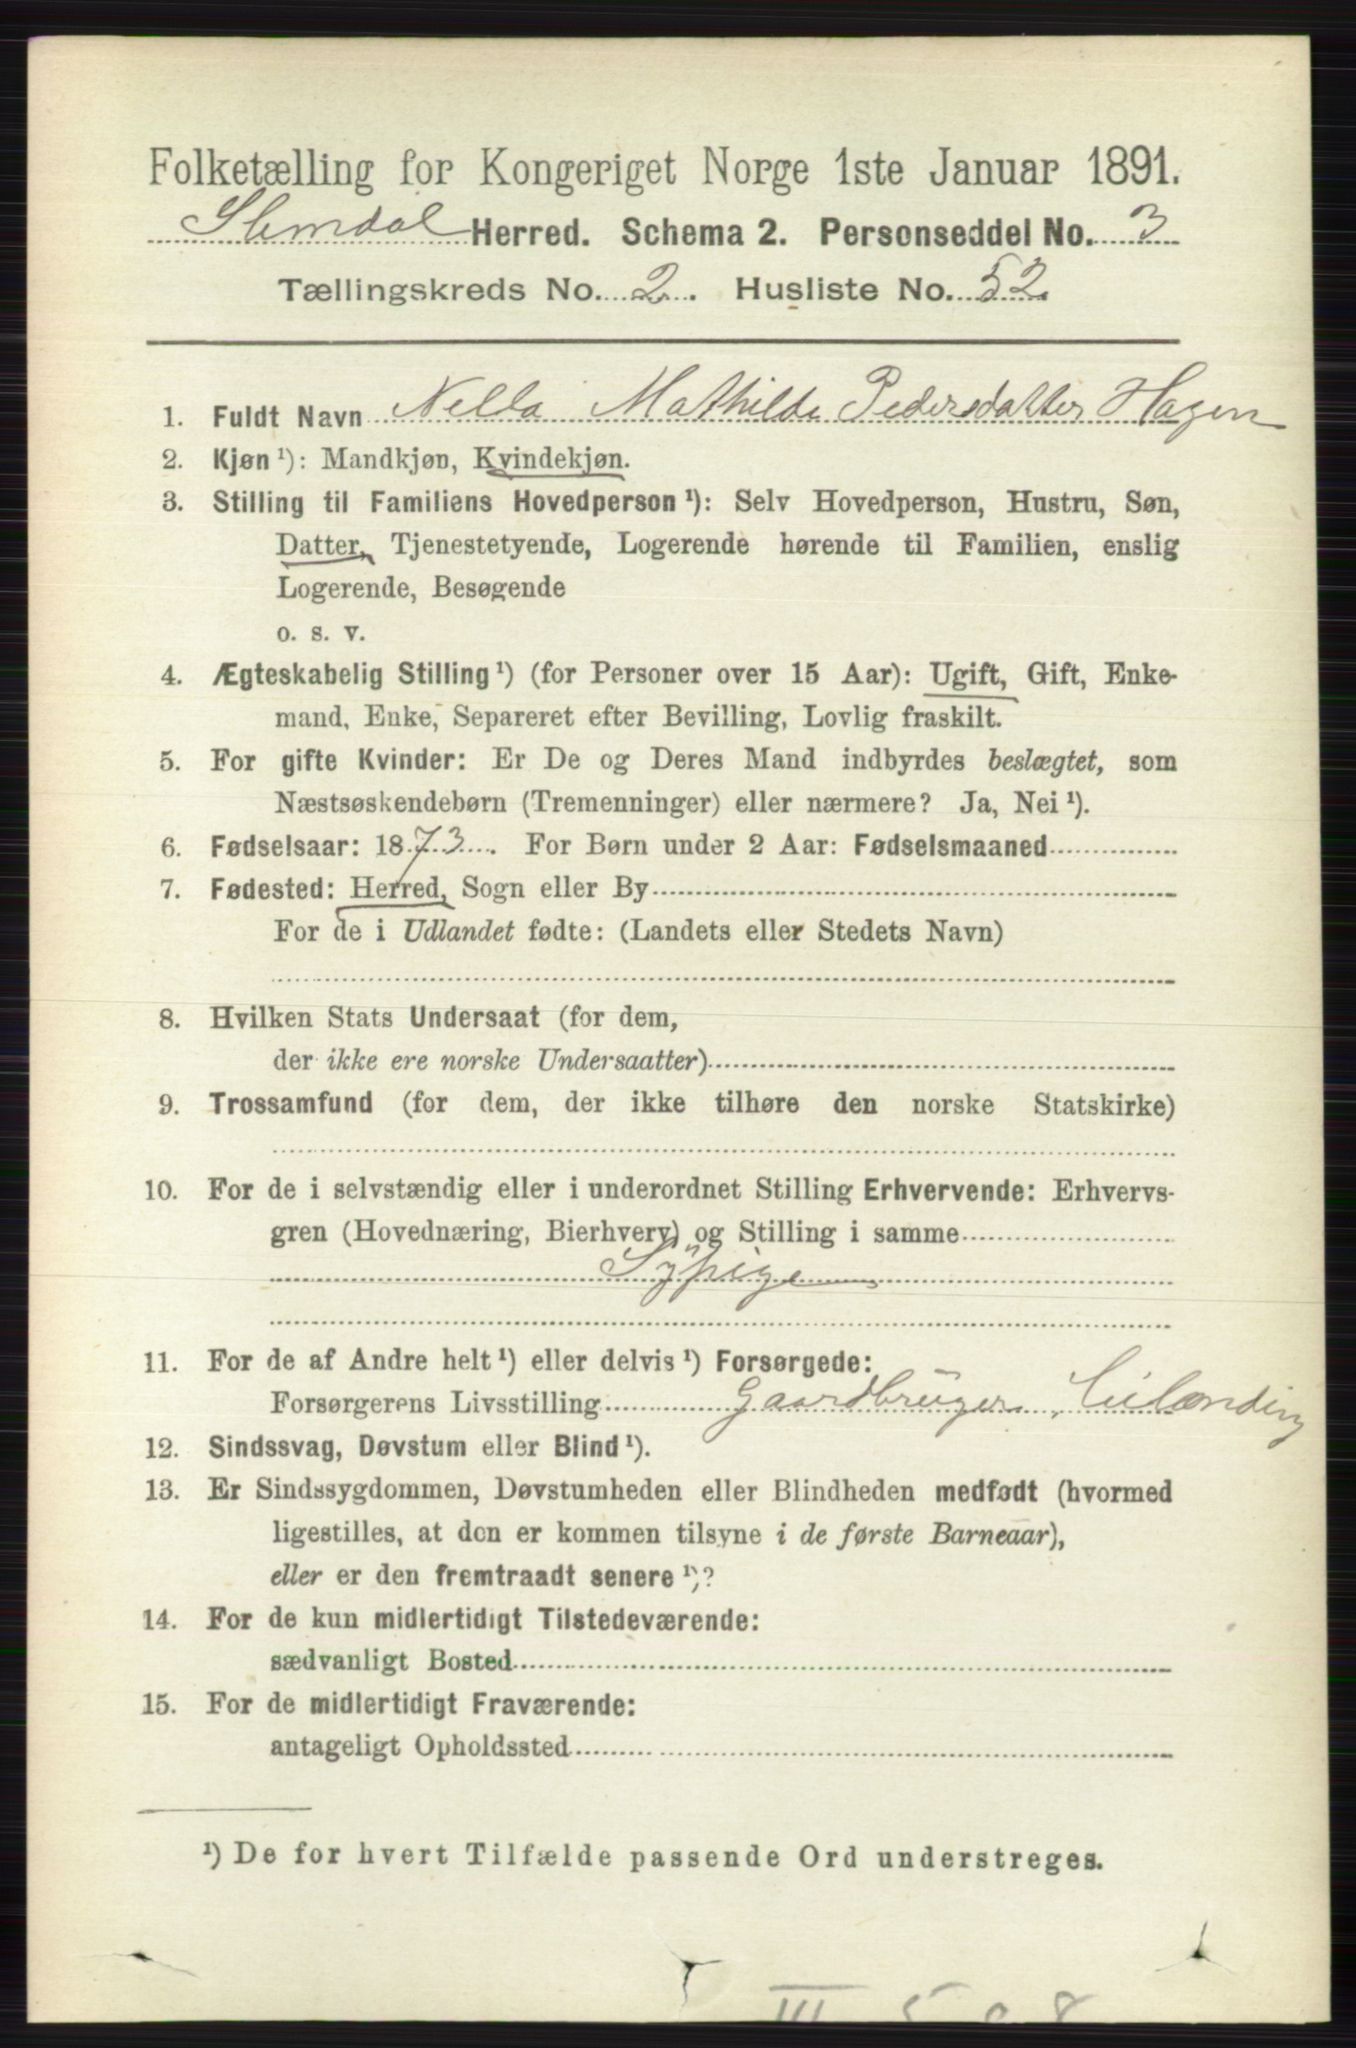 Folketælling for Kongeriget Norge 1ste Januar 1891.
Slemdal Herred. Schema 2. Personseddel No. 3
Tællingskreds No. 2. Husliste No. 52
1. Fuldt Navn Nella Mathilde Pedersdatter Hagen
2. Kjøn ¹): Mandkjøn, Kvindekjøn.
3. Stilling til Familiens Hovedperson ¹): Selv Hovedperson, Hustru, Søn,
Datter, Tjenestetyende, Logerende hørende til Familien, enslig
Logerende, Besøgende
o. s. v.
4. Ægteskabelig Stilling ¹) (for Personer over 15 Aar): Ugift, Gift, Enke-
mand, Enke, Separeret efter Bevilling, Lovlig fraskilt.
5. For gifte Kvinder: Er De og Deres Mand indbyrdes beslægtet, som
Næstsøskendebørn (Tremenninger) eller nærmere? Ja, Nei ¹).
6. Fødselsaar: 1873. For Børn under 2 Aar: Fødselsmaaned
7. Fødested: Herred, Sogn eller By
For de i Udlandet fødte: (Landets eller Stedets Navn)
8. Hvilken Stats Undersaat (for dem,
der ikke ere norske Undersaatter)
9. Trossamfund (for dem, der ikke tilhøre den norske Statskirke)
10. For de i selvstændig eller i underordnet Stilling Erhvervende: Erhvervs-
gren (Hovednæring, Bierhverv) og Stilling i samme
Sypige
11. For de af Andre helt ¹) eller delvis ¹) Forsørgede:
Forsørgerens Livsstilling Gaardbruger, Leilænding
12. Sindssvag, Døvstum eller Blind ¹).
13. Er Sindssygdommen, Døvstumheden eller Blindheden medfødt (hvormed
ligestilles, at den er kommen tilsyne i de første Barneaar),
eller er den fremtraadt senere ¹)?
14. For de kun midlertidigt Tilstedeværende:
sædvanligt Bosted
15. For de midlertidigt Fraværende:
antageligt Opholdssted
¹) De for hvert Tilfælde passende Ord understreges.